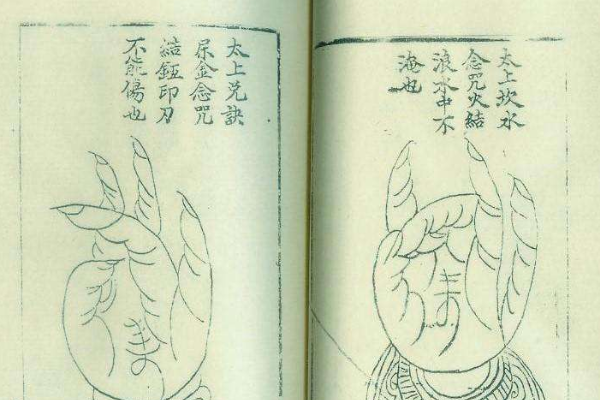 太上坎水
念咒火結
浪水中不
淹也
太上兌訣
尿金念咒
結鉦印刀
不能傷也